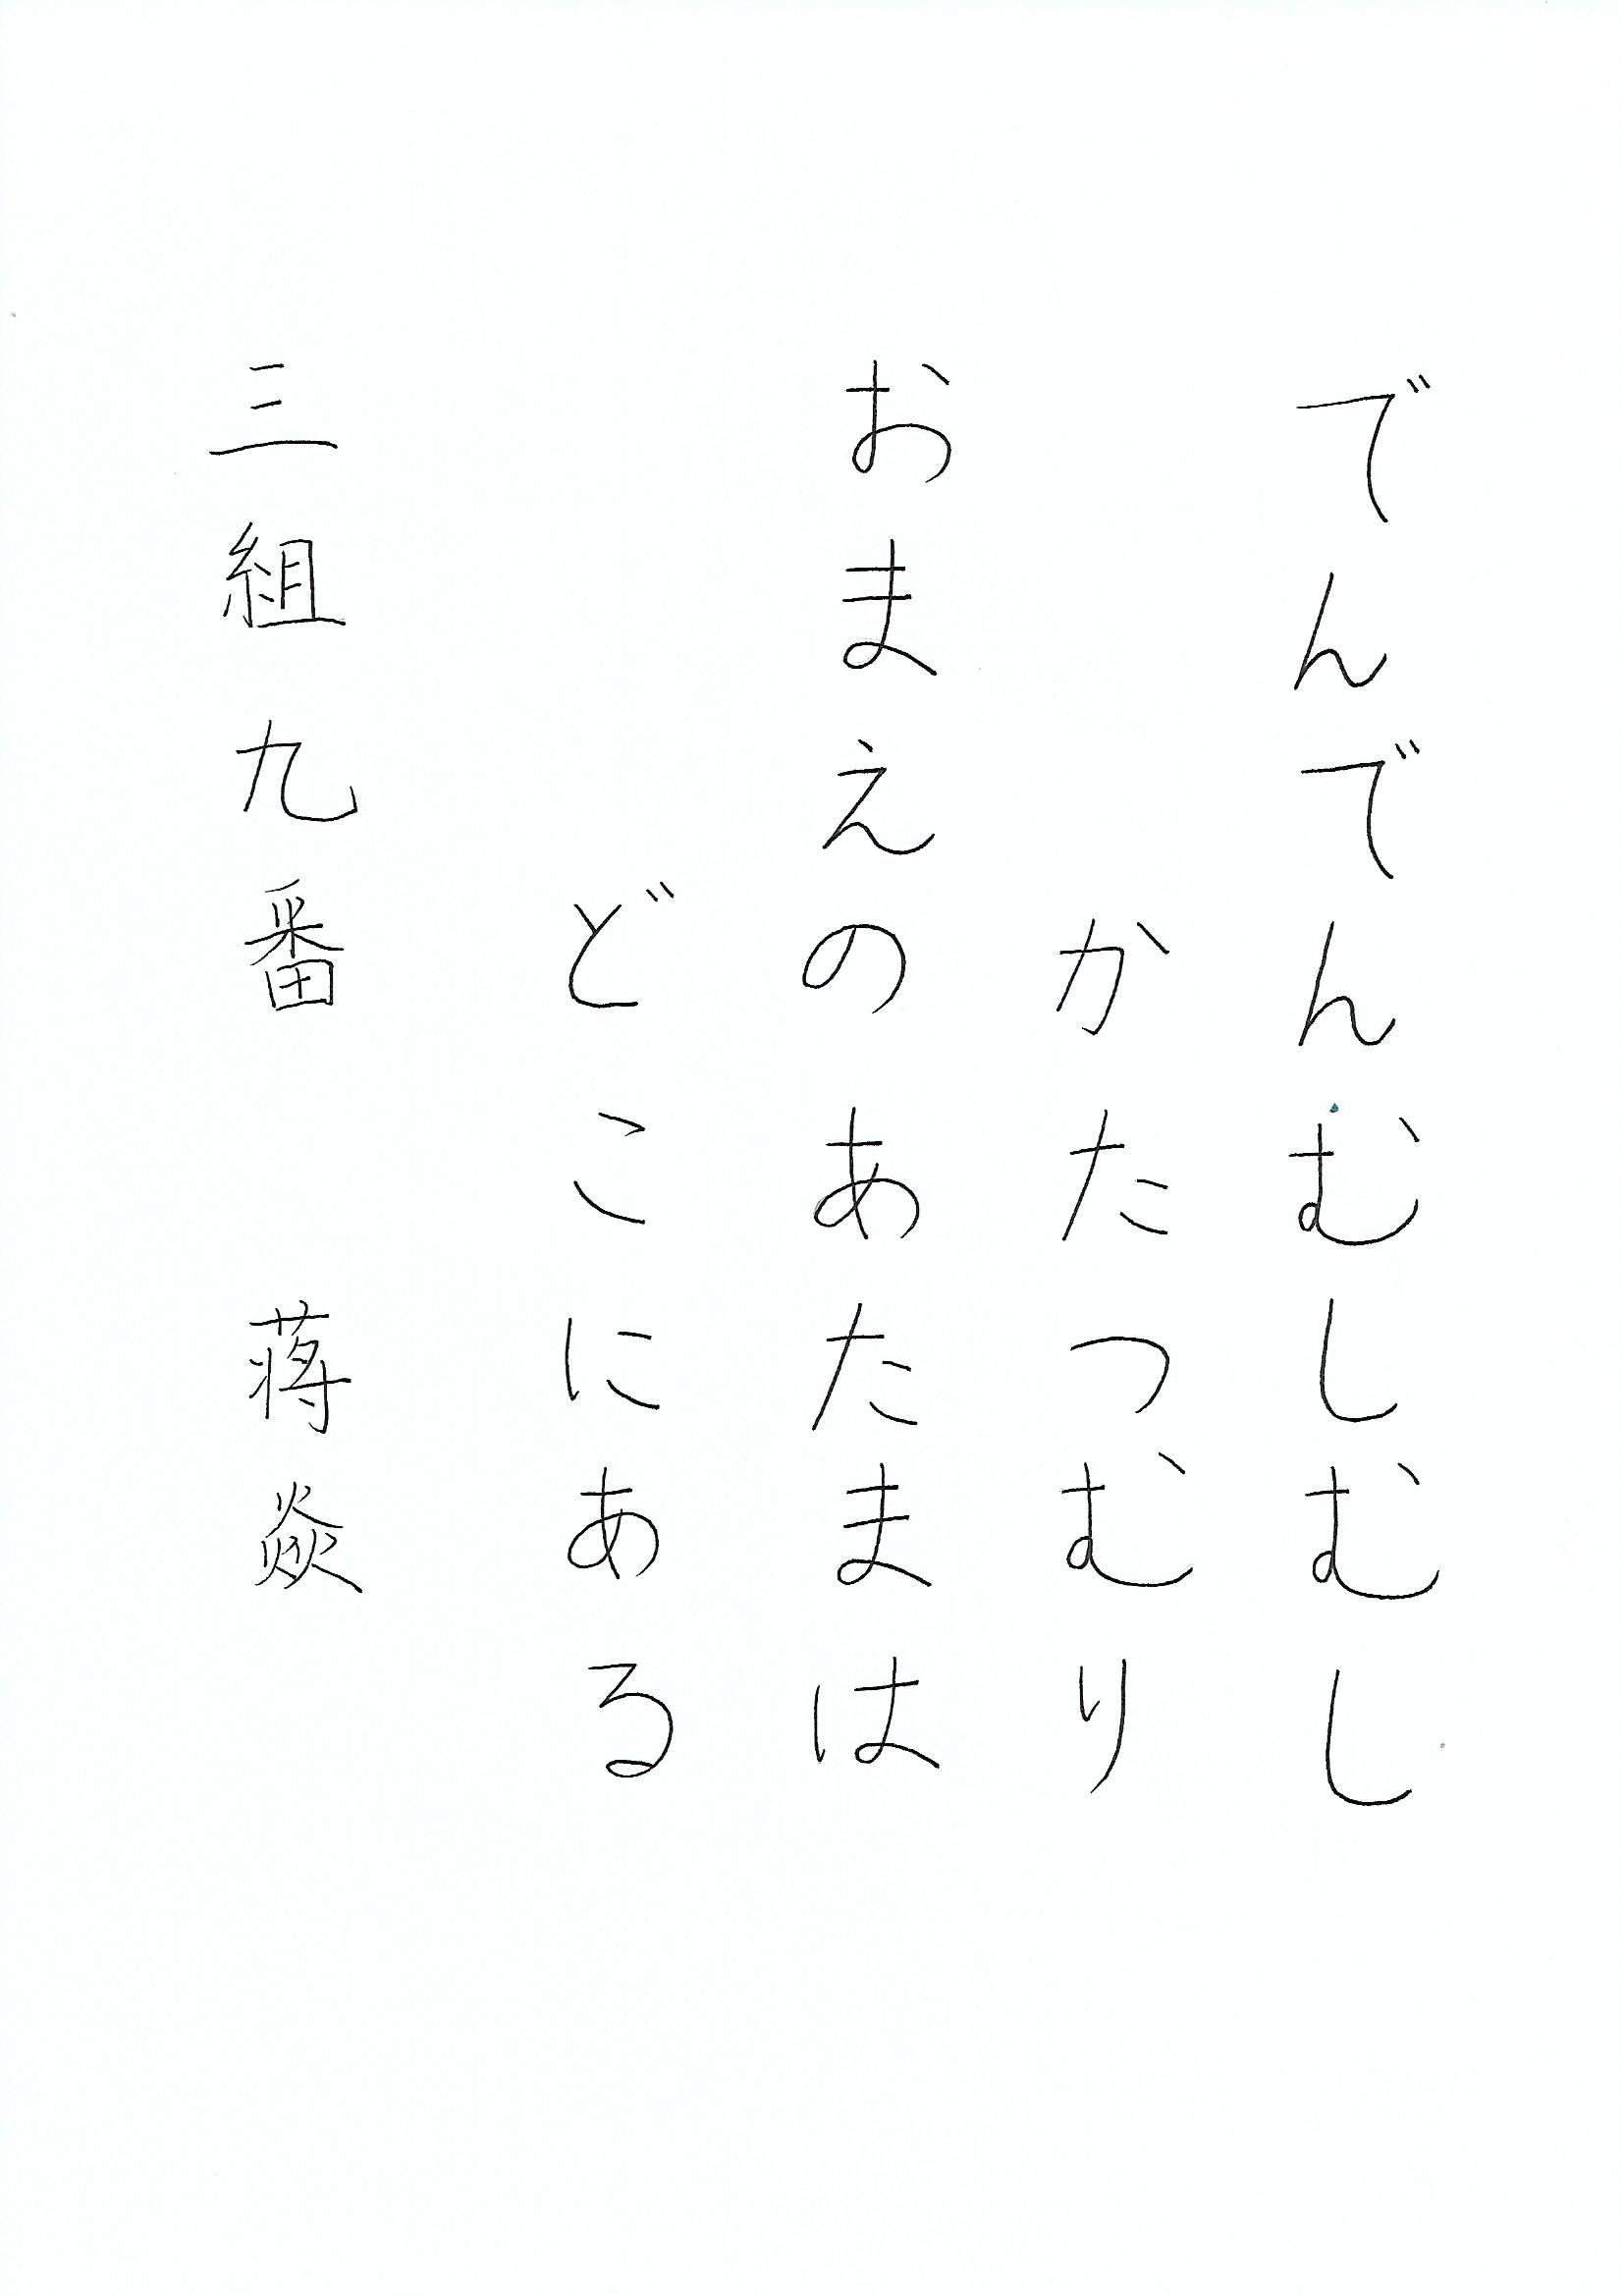 でんでんむしむし
かたつむり
おまえのあたまは
どこにある
三組九番　蒋焱